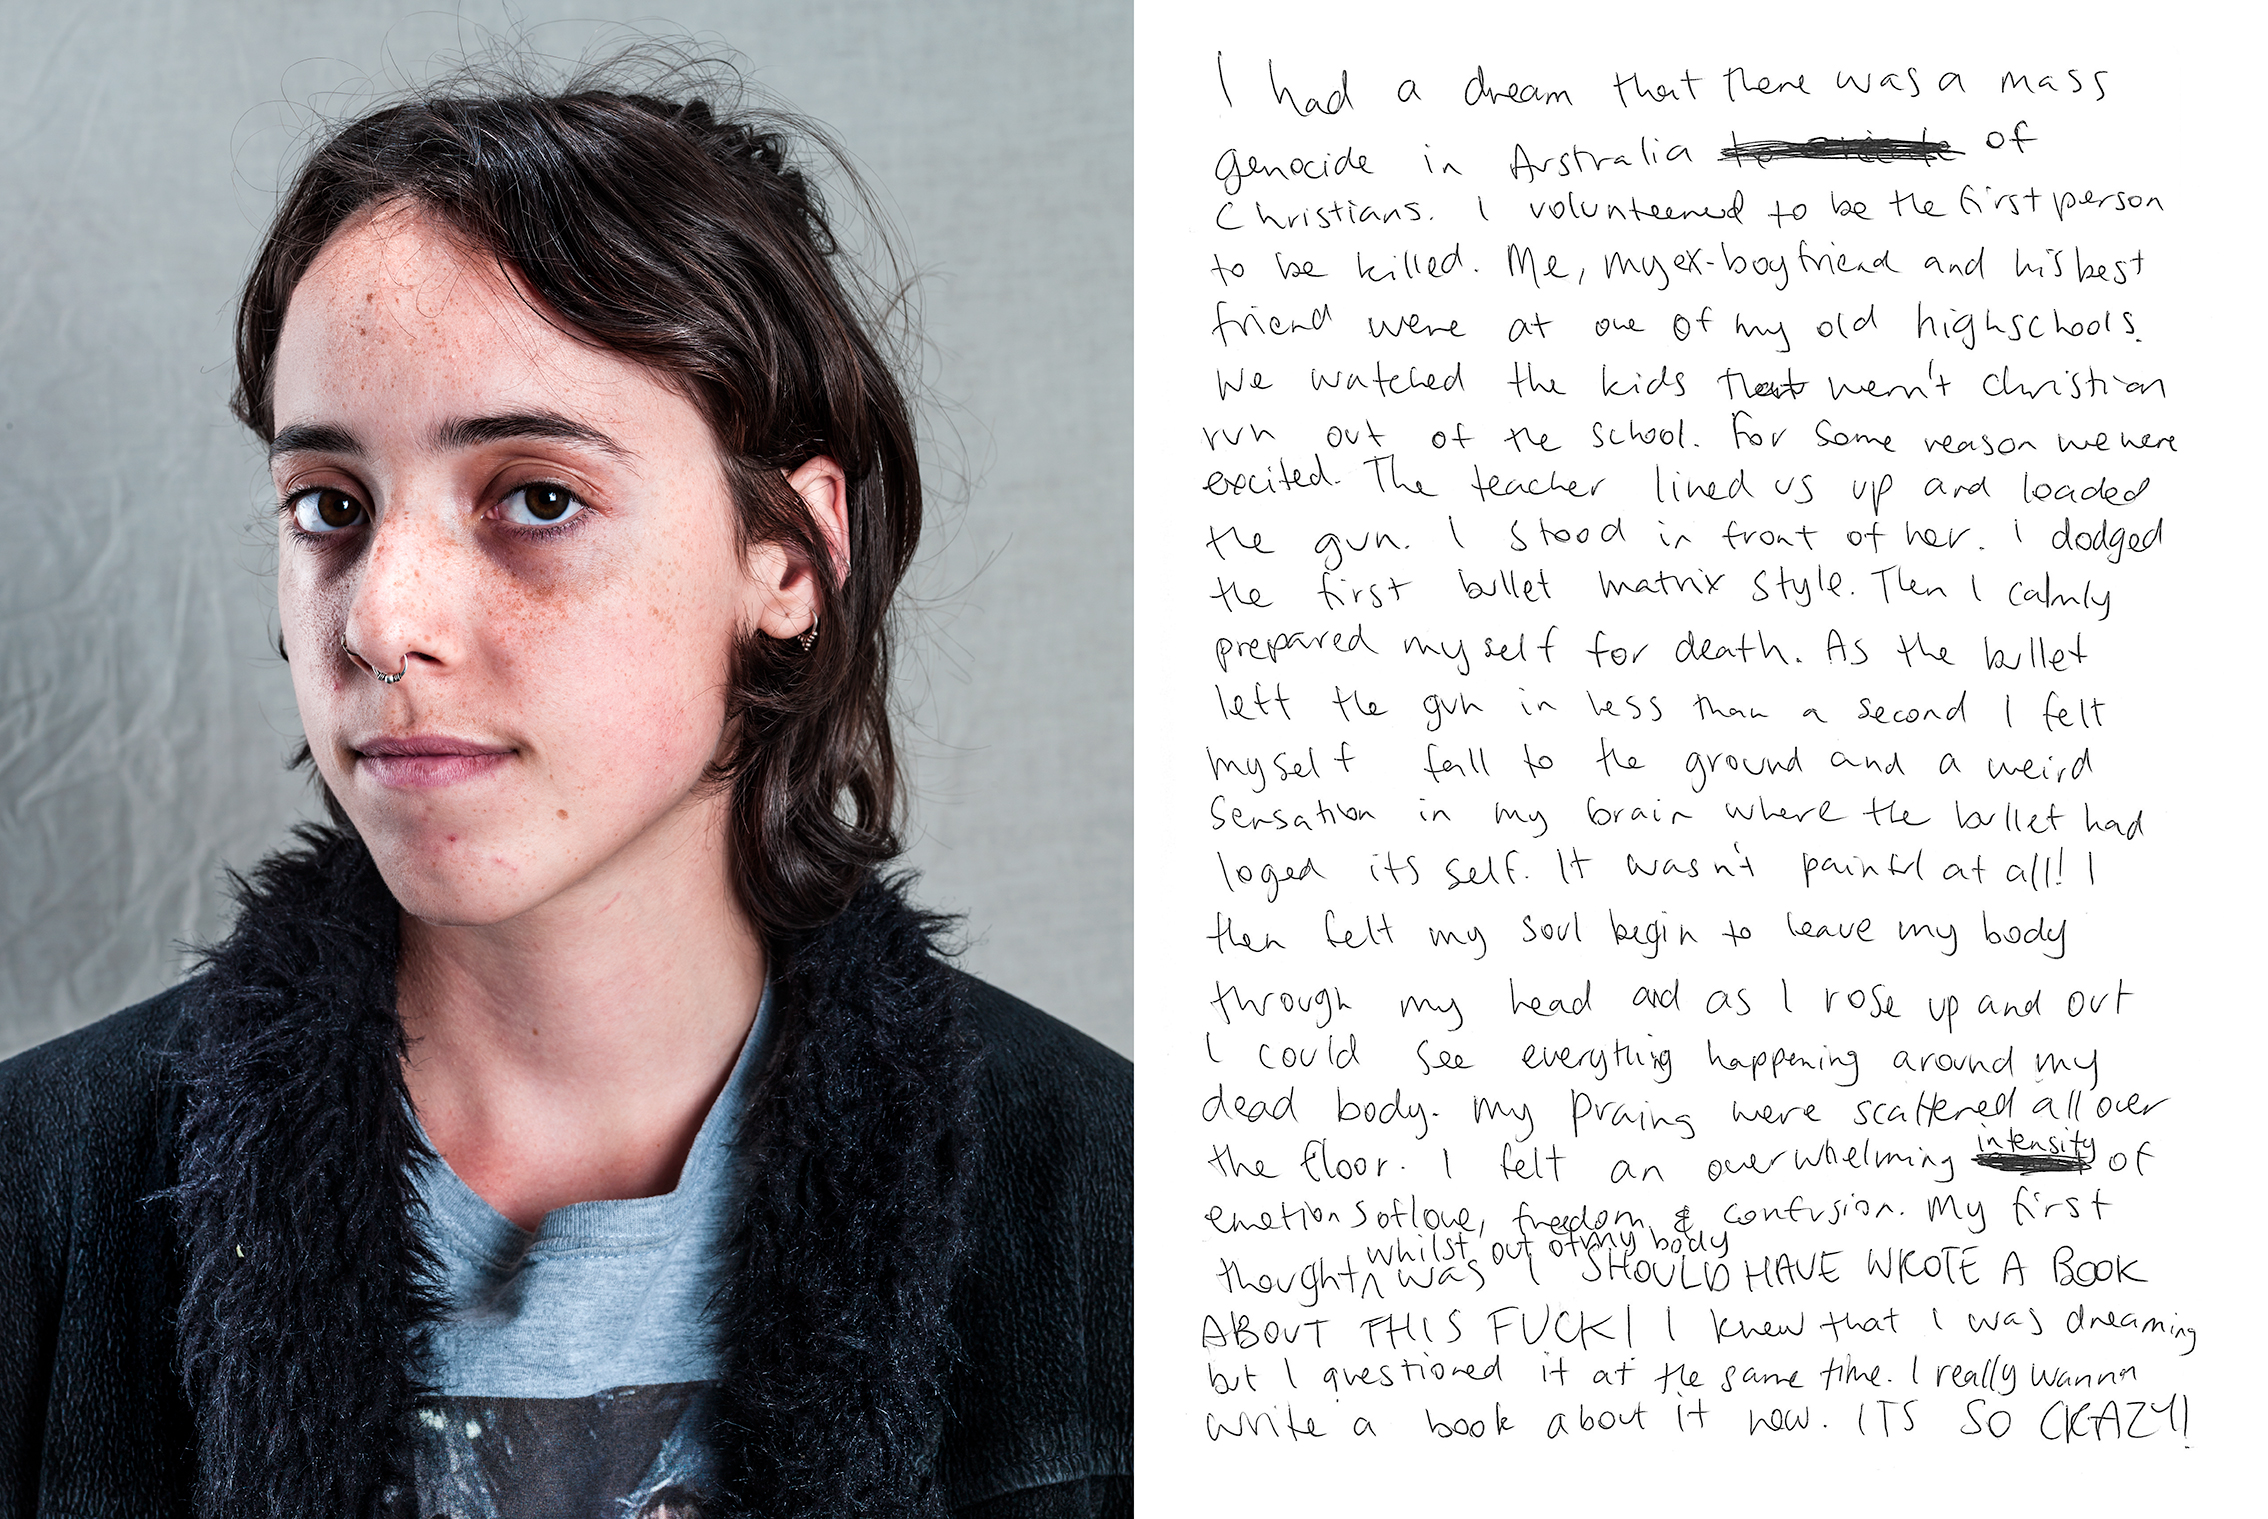 I had a dream that there was a mass
genocide in Australia of
Christians. I volunteered to be the first person
to be killed. Me, my ex-boyfriend and his best
friend were at one of my old highschools.
We watched the kids that wern't Christian
run out of the school. For some reason we were
excited. The teacher lined us up and loaded
the gun. I stood in front of her. I dodged
the first bullet matrix style. Then I calmly
prepared myself for death. As the bullet
left the gun in less than a second I felt
myself fall to the ground and a weird
sensation in my brain where the bullet had
loged its self. It wasn't painful at all! I
then felt my soul begin to leave my body
through my head and as I rose up and out
I could see everything happening around my
dead body. My were scattered all over
the floor. I felt an overwhelming intensity of
emotions of love, freedom & confusion. My first
thought whilst out of my body was I SHOULD HAVE WROTE A BOOK
ABOUT THIS FUCK! I knew that I was dreaming
but I questioned it at the same time. I really wanna
write a book about it now. ITS SO CRAZY!